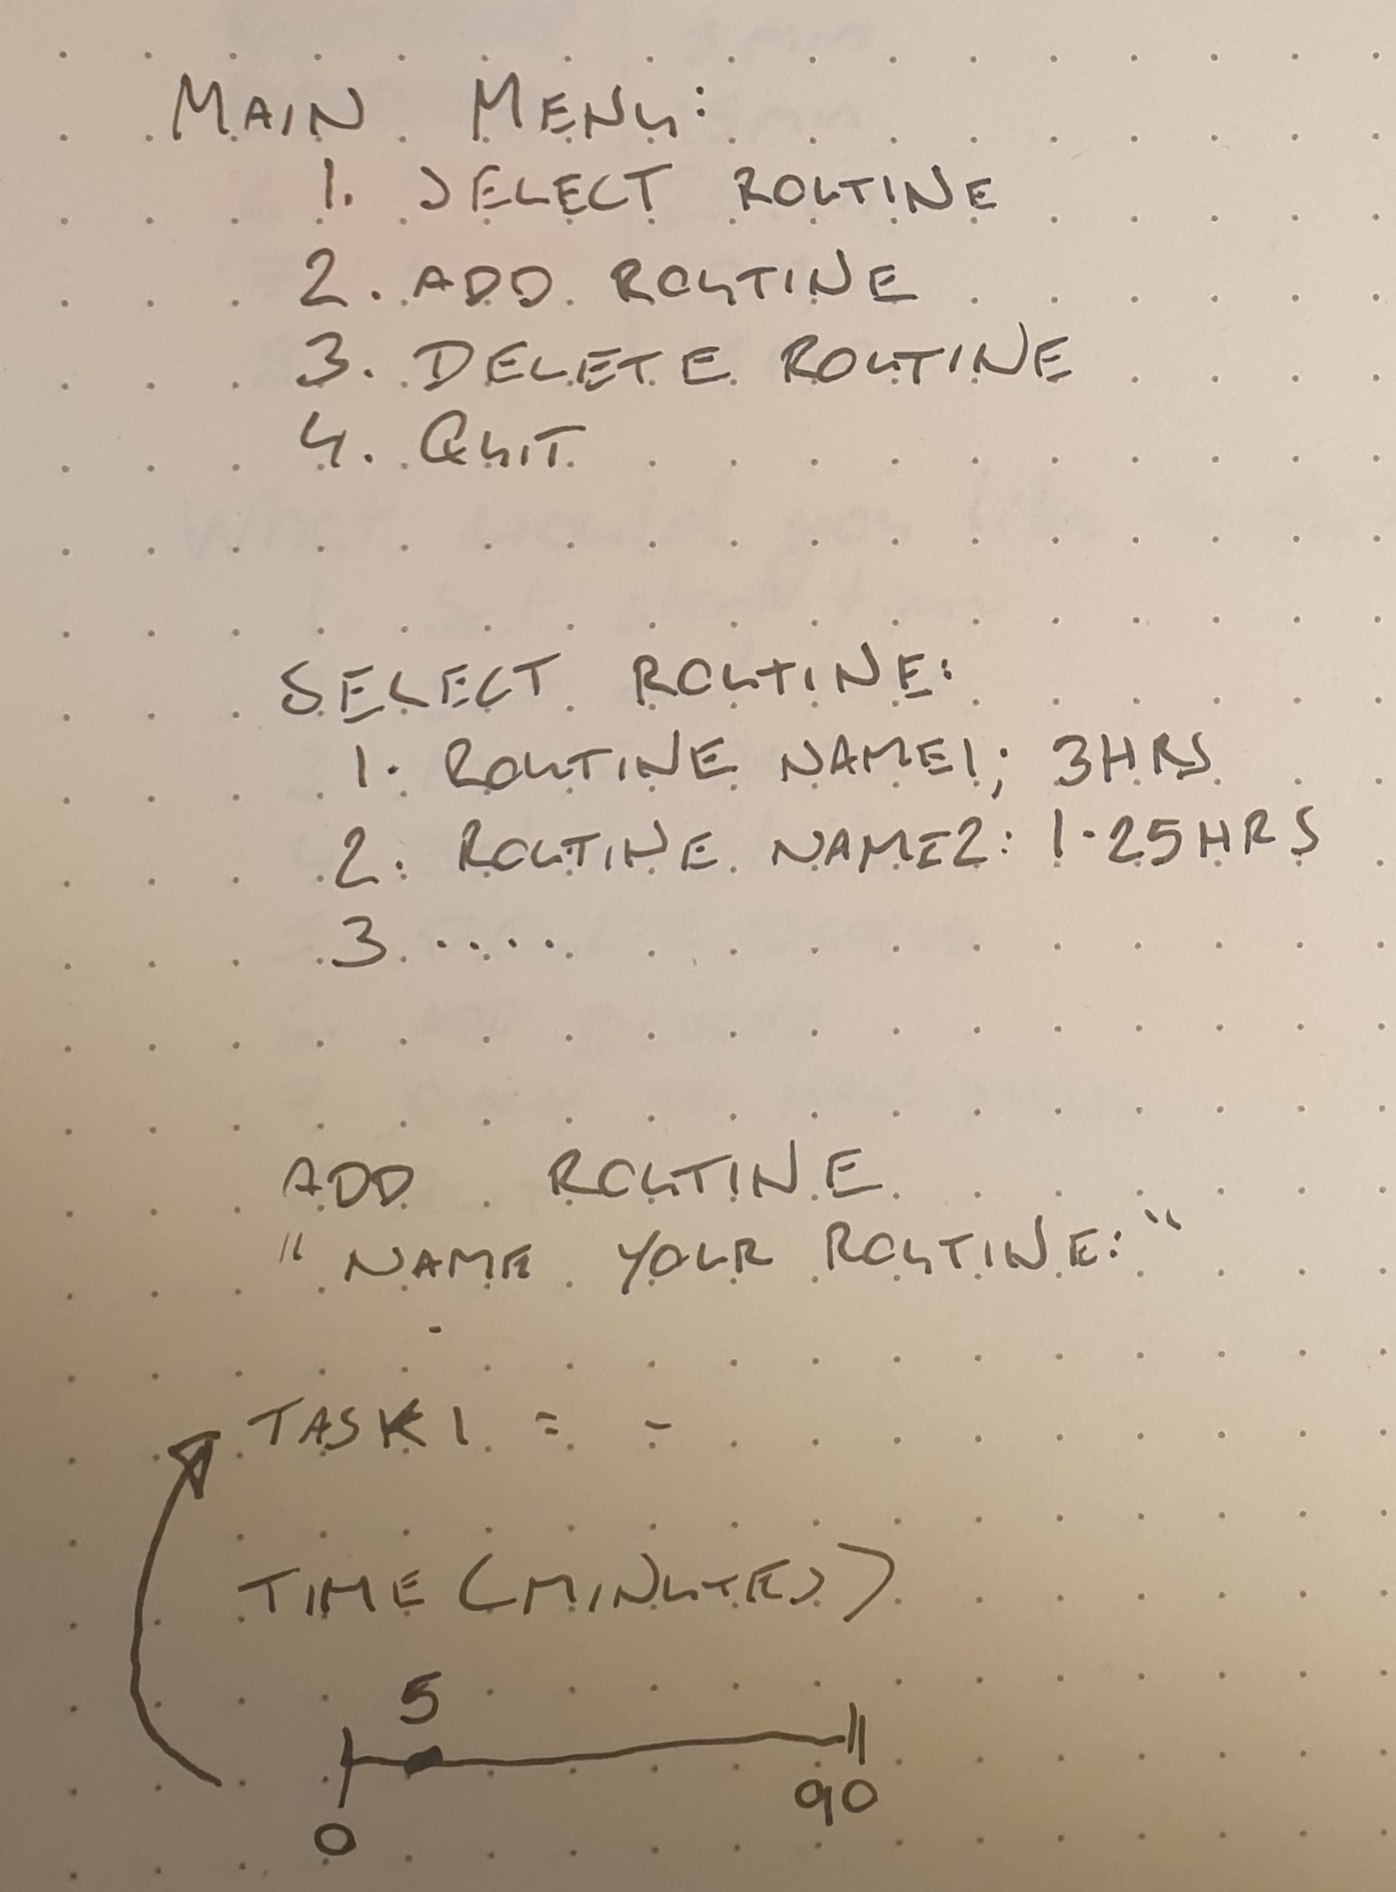 MAIN MENU:
1. SELECT ROUTINE
2. ADD ROUTINE
3. DELETE ROUTINE
4. QUIT
SELECT ROUTINE:
1. ROUTINE NAME1; 3HRS
2. ROUTINE NAME2: 1.25HRS
3.....
ADD ROUTINE
"NAME YOUR ROUTINE:"
-
TASK1 = -
TIME (MINUTES)
5
0 90